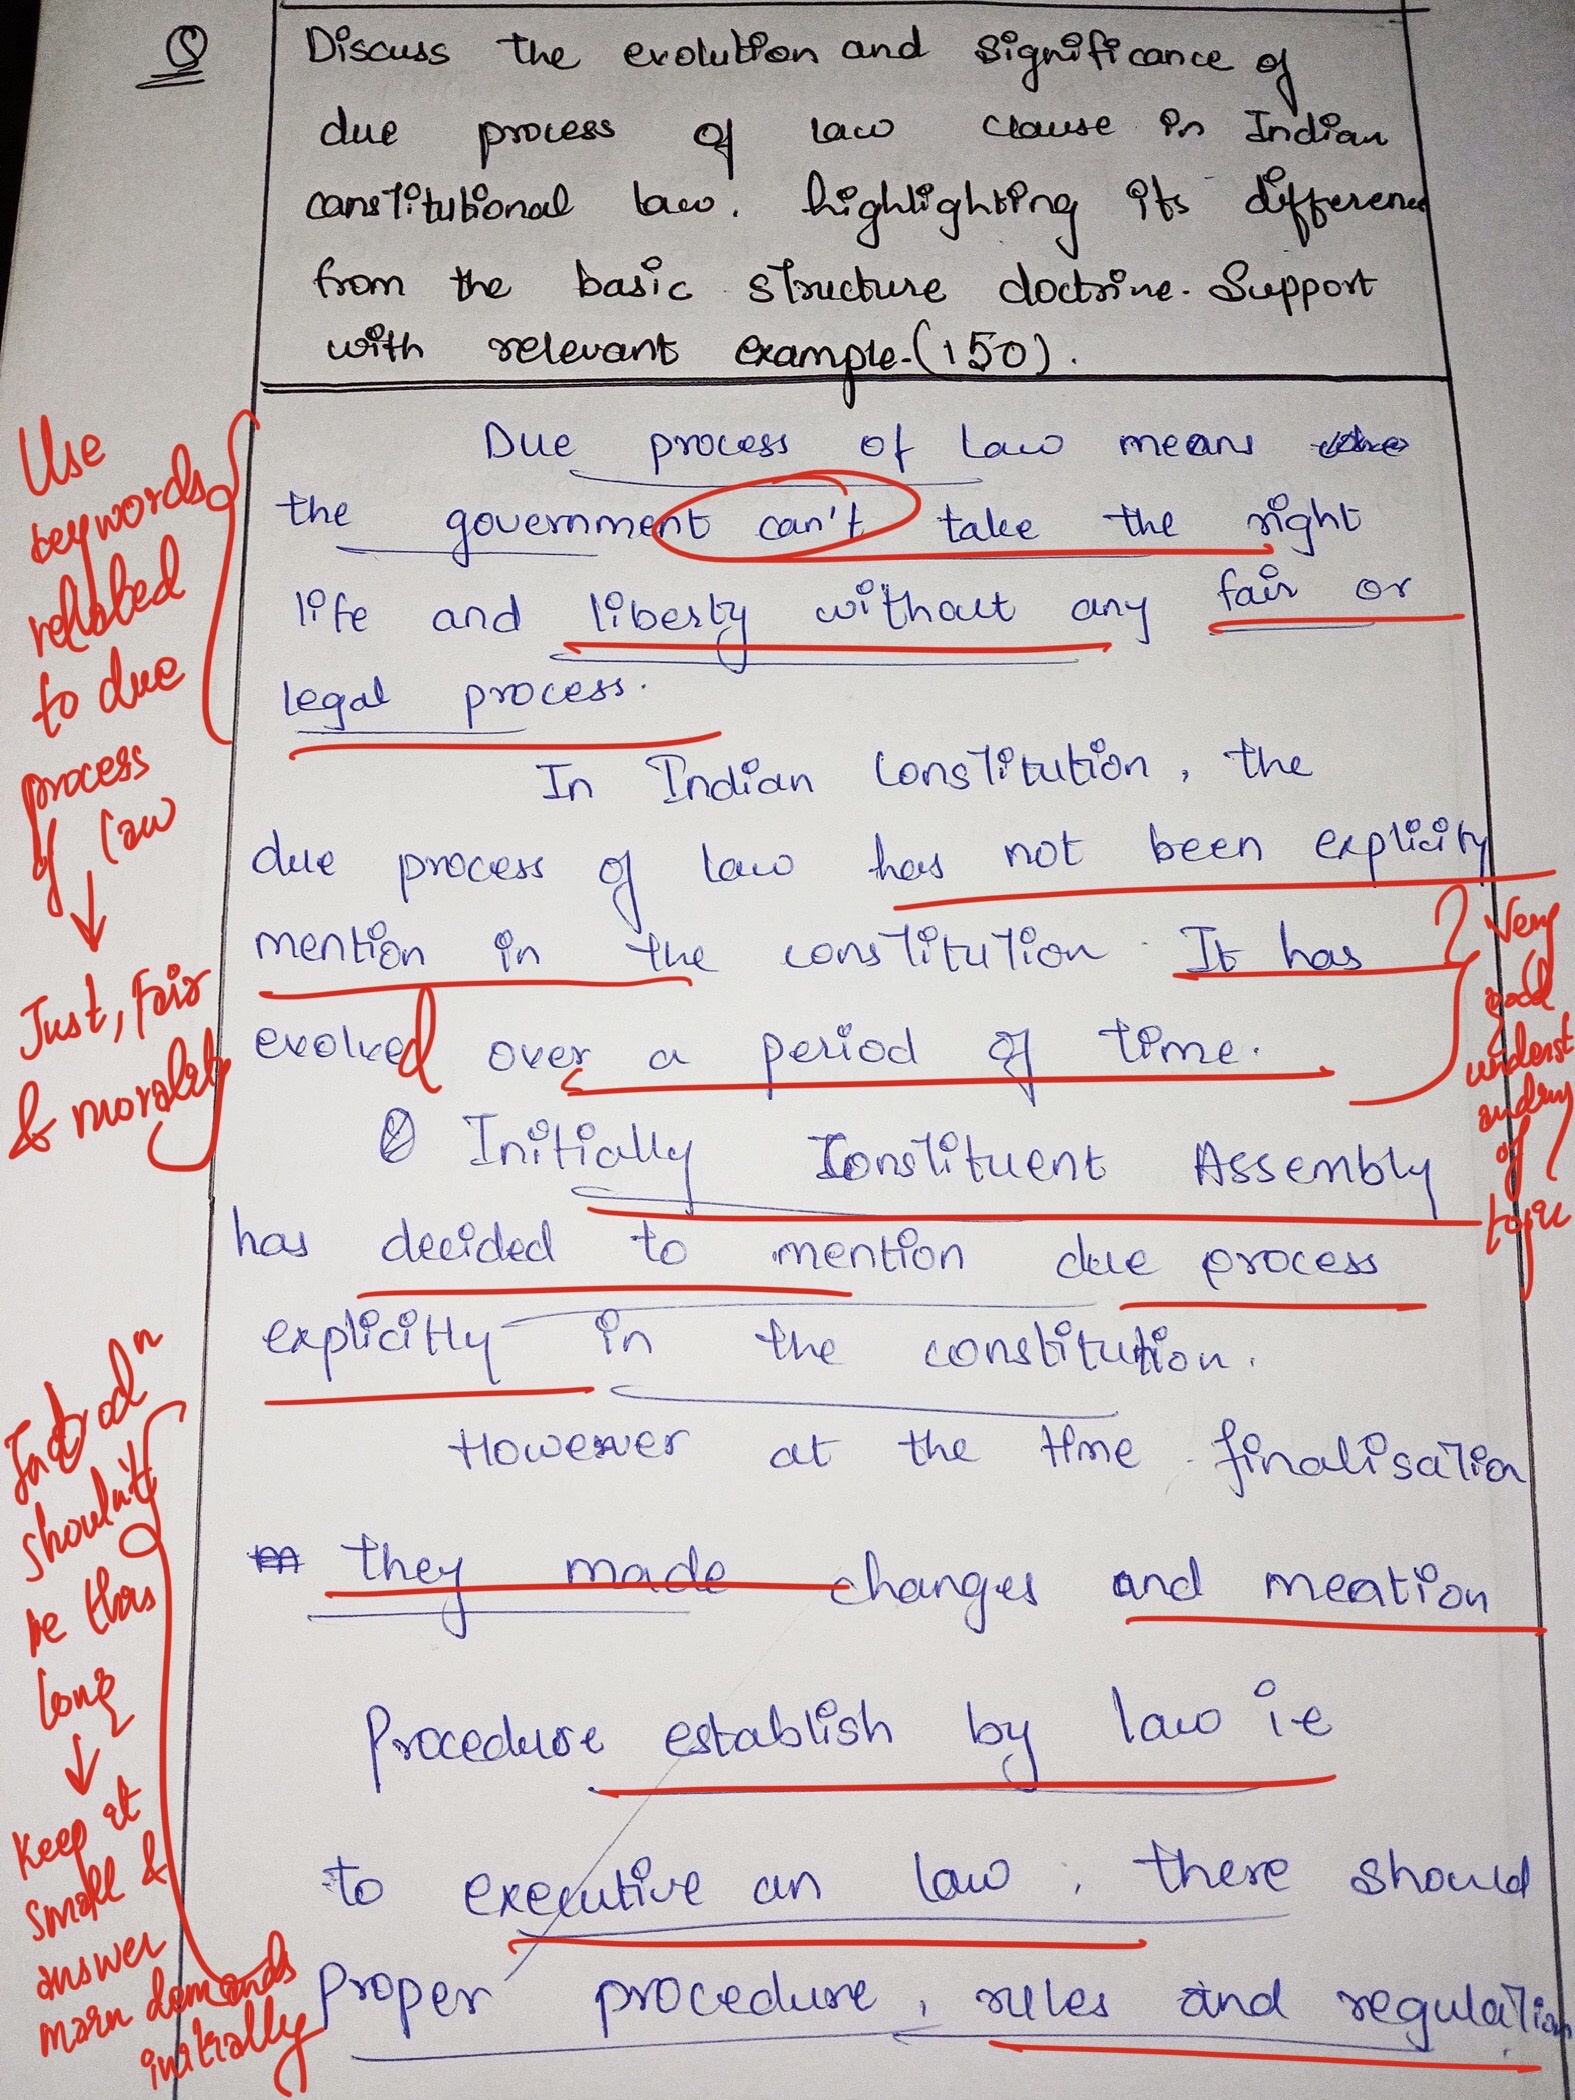 Q
Discuss the evolution and significance of
due process of law clause in Indian
constitutional law. highlighting its difference
from the basic structure doctrine. Support
with relevant example.(150).
Due process of law means
the government can't take the right
life and liberty without any fair or
legal process.
In Indian Constitution, the
due process of law has not been explicity
mention in the constitution. It has
evolved over a period of time.
Initially Constituent Assembly
has decided to mention due process
explicitly in the constitution.
However at the time finalisation
they made changes and mention
Procedure establish by law i.e
to executive an law, there should
proper procedure, rules and regulation
Use
keywords
related
to due
process
of law
↓
Just, Fair
& morality
Very
good
underst
anding
of
topic
Introdn
shouldn't
be this
long
↓
Keep it
small &
answer
main demands
initially